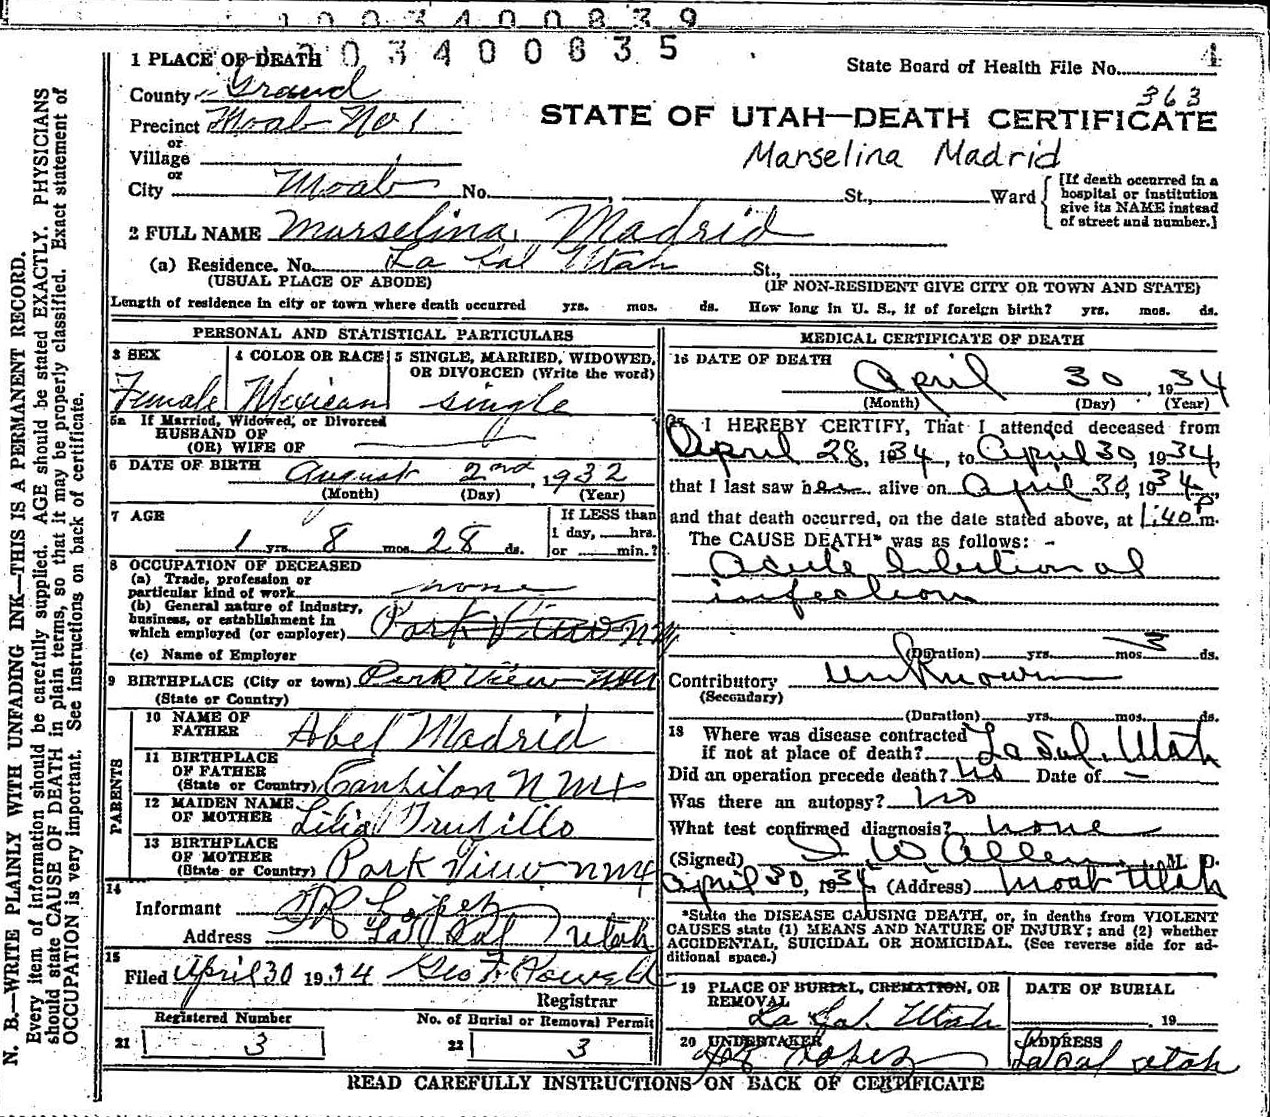 1003400839
1003400835
4
1 PLACE OF DEATH
State Board of Health File No.
363
County Grand
Precinct Moab No 1
or
Village
or
STATE OF UTAH—DEATH CERTIFICATE
Marselina Madrid
City Moab No. St., Ward
[If death occurred in a hospital or institution give its NAME instead of street and number.]
2 FULL NAME Marselina Madrid
(a) Residence. No. La Sal Utah St.,
(USUAL PLACE OF ABODE) (IF NON-RESIDENT GIVE CITY OR TOWN AND STATE)
Length of residence in city or town where death occurred yrs. mos. ds. How long in U. S., if of foreign birth? yrs. mos. ds.
PERSONAL AND STATISTICAL PARTICULARS
3 SEX 4 COLOR OR RACE 5 SINGLE, MARRIED, WIDOWED, OR DIVORCED (Write the word)
Female Mexican single
5a If Married, Widowed, or Divorced
HUSBAND OF
(OR) WIFE OF
6 DATE OF BIRTH August 2nd, 1932
(Month) (Day) (Year)
7 AGE If LESS than
1 yrs. 8 mos. 28 ds. 1 day, hrs.
or min.?
8 OCCUPATION OF DECEASED
(a) Trade, profession or
particular kind of work none
(b) General nature of industry,
business, or establishment in
which employed (or employer) Park View N M
(c) Name of Employer
9 BIRTHPLACE (City or town) Park View N M
(State or Country)
PARENTS
10 NAME OF
FATHER Abel Madrid
11 BIRTHPLACE
OF FATHER
(State or Country) Canhilon N Mx
12 MAIDEN NAME
OF MOTHER Lilia Trujillo
13 BIRTHPLACE
OF MOTHER
(State or Country) Park View N Mx
14
Informant JR Lopez
Address La Sal Utah
15
Filed April 30 1934 Geo F. Powell
Registrar
Registered Number No. of Burial or Removal Permit
21 3 22 3
MEDICAL CERTIFICATE OF DEATH
16 DATE OF DEATH
April 30, 1934
(Month) (Day) (Year)
17 I HEREBY CERTIFY, That I attended deceased from
April 28, 1934, to April 30, 1934,
that I last saw her alive on April 30, 1934,
and that death occurred, on the date stated above, at 1:40 P m.
The CAUSE DEATH* was as follows:
Acute Intestional
infection
(Duration) yrs. mos. 3 ds.
Contributory Unknown
(Secondary)
(Duration) yrs. mos. ds.
18 Where was disease contracted
if not at place of death? La Sal, Utah
Did an operation precede death? No Date of —
Was there an autopsy? No
What test confirmed diagnosis? none
(Signed) I W Allen, M. D.
April 30, 1934 (Address) Moab Utah
*State the DISEASE CAUSING DEATH, or, in deaths from VIOLENT
CAUSES state (1) MEANS AND NATURE OF INJURY; and (2) whether
ACCIDENTAL, SUICIDAL OR HOMICIDAL. (See reverse side for ad-
ditional space.)
19 PLACE OF BURIAL, CREMATION, OR
REMOVAL
La Sal, Utah
DATE OF BURIAL
, 19
20 UNDERTAKER
JR Lopez
ADDRESS
La Sal Utah
READ CAREFULLY INSTRUCTIONS ON BACK OF CERTIFICATE
N. B.—WRITE PLAINLY WITH UNFADING INK—THIS IS A PERMANENT RECORD.
Every item of information should be carefully supplied. AGE should be stated EXACTLY. PHYSICIANS
should state CAUSE OF DEATH in plain terms, so that it may be properly classified. Exact statement of
OCCUPATION is very important. See instructions on back of certificate.